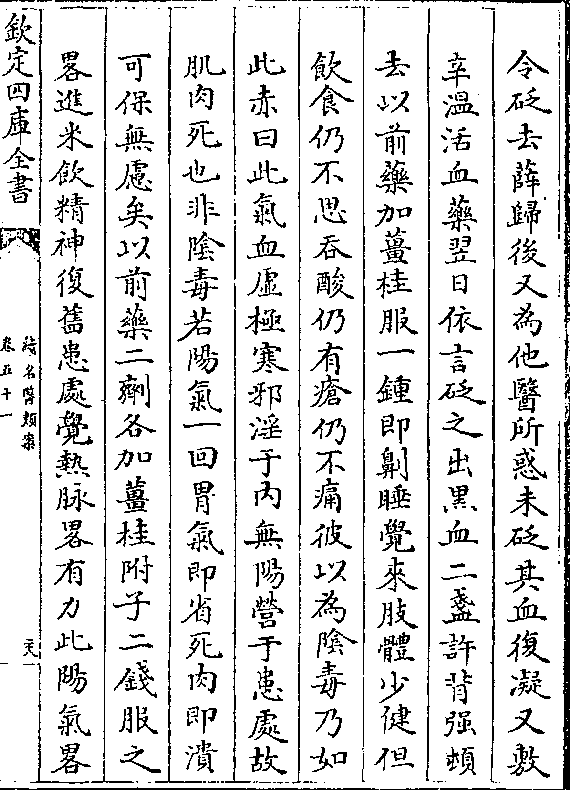 令砭去薛歸後又為他醫所惑未砭其血復凝又敷
辛溫活血藥翌日依言砭之出黑血二盞許背强頓
去以前藥加薑桂服一鍾即鼾睡覺來肢體少健但
飲食仍不思吞酸仍有瘡仍不痛彼以為陰毒乃如
此赤曰此氣血虛極寒邪淫于內無陽營于患處故
肌肉死也非陰毒若陽氣一回胃氣即省死肉即潰
可保無慮矣以前藥二劑各加薑桂附子二錢服之
畧進米飲精神復舊患處覺熱脉畧有力此陽氣畧
欽定四庫全書
續名醫類案
卷五十一